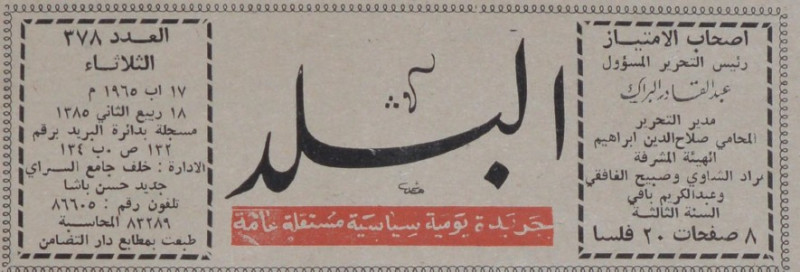 اصحاب الامتياز
رئيس التحرير المسؤول
عبدالقادر البراك
مدير التحرير
المحامي صلاح الدين ابراهيم
الهيئة المشرفة
مراد الشاوي وصبيح الغافقي
وعبدالكريم بافي
السنة الثالثة
٨ صفحات ٢٠ فلسا
البلد
جريدة يومية سياسية مستقلة عامة
العدد ٣٧٨
الثلاثاء
١٧ اب ١٩٦٥ م
١٨ ربيع الثاني ١٣٨٥
مسجلة بدائرة البريد برقم
١٣٢ ص ٠ب ١٣٤
الادارة : خلف جامع السراي
جديد حسن باشا
تلفون رقم : ٨٦٦٠٥
٨٣٢٨٩ المحاسبة
طبعت بمطابع دار التضامن